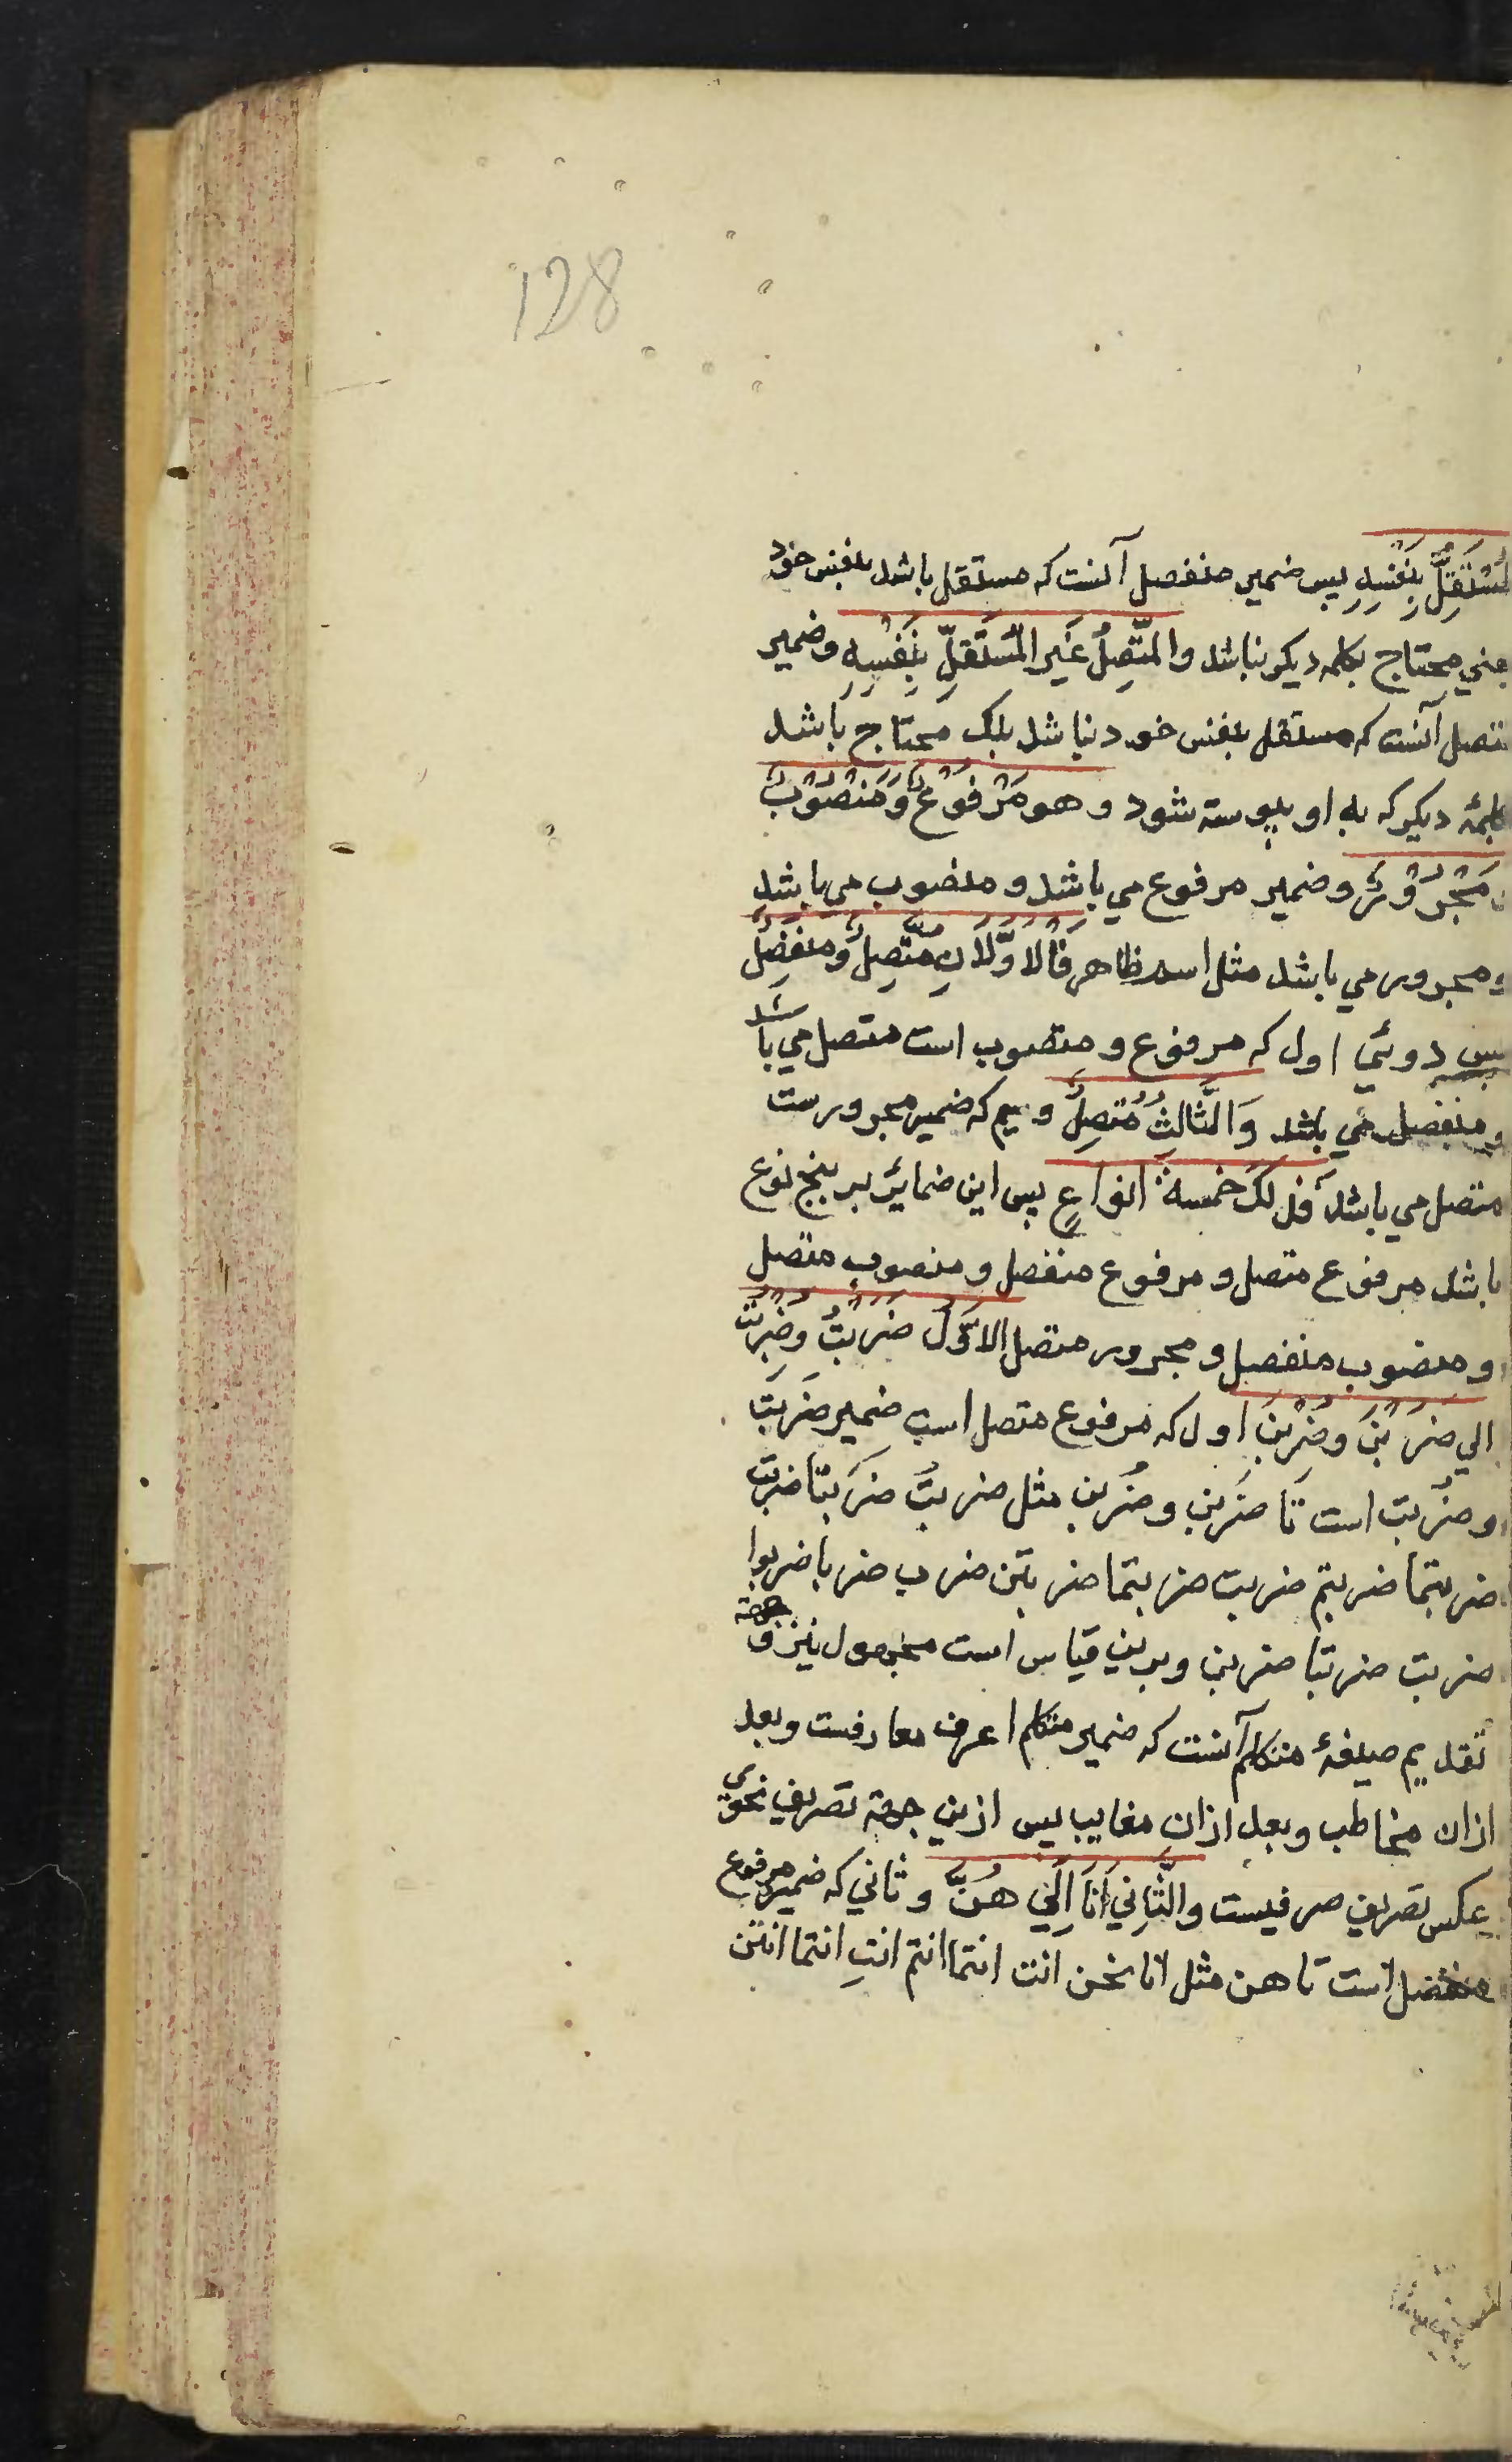 128
لمُسْتَقِلُّ بِنَفْسِهِ پس ضمیر منفصل آنست که مستقل باشد بنفس خود
یعني محتاج بکلمه دیکر نباشد والمتَّصِلُ غَیرالمُسْتَقِلِّ بِنَفْسِهِ وضمیر
متصل آنست که مستقل بنفس خود نباشد بلک محتاج باشد
بکلمهٔ دیکر که به او پیوسته شود و هو مَرْفُوْعٌ وَمَنْصُوْبٌ
ومَجْرُوْرٌ وضمیر مرفوع می باشد و منصوب می باشد
ومجرور می باشد مثل اسم ظاهر فَالْاَوَّلَانِ مُتَّصِلٌ وَمنفَصِلٌ
پس دوئي اول که مرفوع و منصوب است متصل می باشد
ومنفصل می باشد وَالثَّالِثُ مُتَّصِلٌ وسیم که ضمیر مجرورست
متصل می باشد فذلکَ خمسةُ انواعٍ پس این ضمائر بر پنج نوع
باشد مرفوع متصل و مرفوع منفصل و منصوب متصل
و منصوب منفصل و مجرور متصل الاَوّلُ ضَرَبْتُ وضُرِبْتُ
الي ضَرَبْنَ وضُرِبْنَ اول که مرفوع متصل است ضمیر ضَرَبتُ
و ضُربت است تا ضَربن وضُربن مثل ضربتُ ضَرَبنا ضربتَ
ضربتما ضربتم ضربت ضربتما ضربتن ضرب ضربا ضربوا
ضربت ضربتا ضربن وبرین قیاس است مجهول نیز وجهة
تقدیم صیغهٔ متکلم آنست که ضمیر متکلم اعرف معارفست وبعد
ازان مخاطب وبعد ازان مغایب پس ازین جهة تصریف نحوی
بعکس تصریف صرفیست والثَّانِي اَنَا اِلَي هُنَّ و ثاني که ضمیر مرفوع
منفصل است تا هن مثل انا نحن انت انتما انتم انتِ انتما انتن